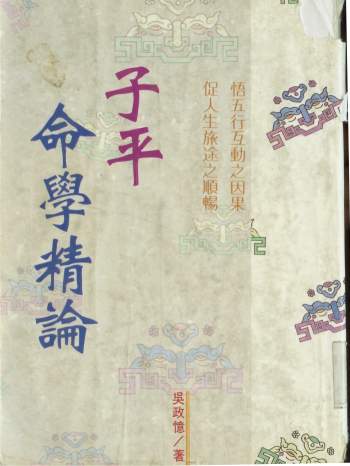 悟五行互動之因果
促人生旅途之順暢
子平
命學精論
吳政憶／著